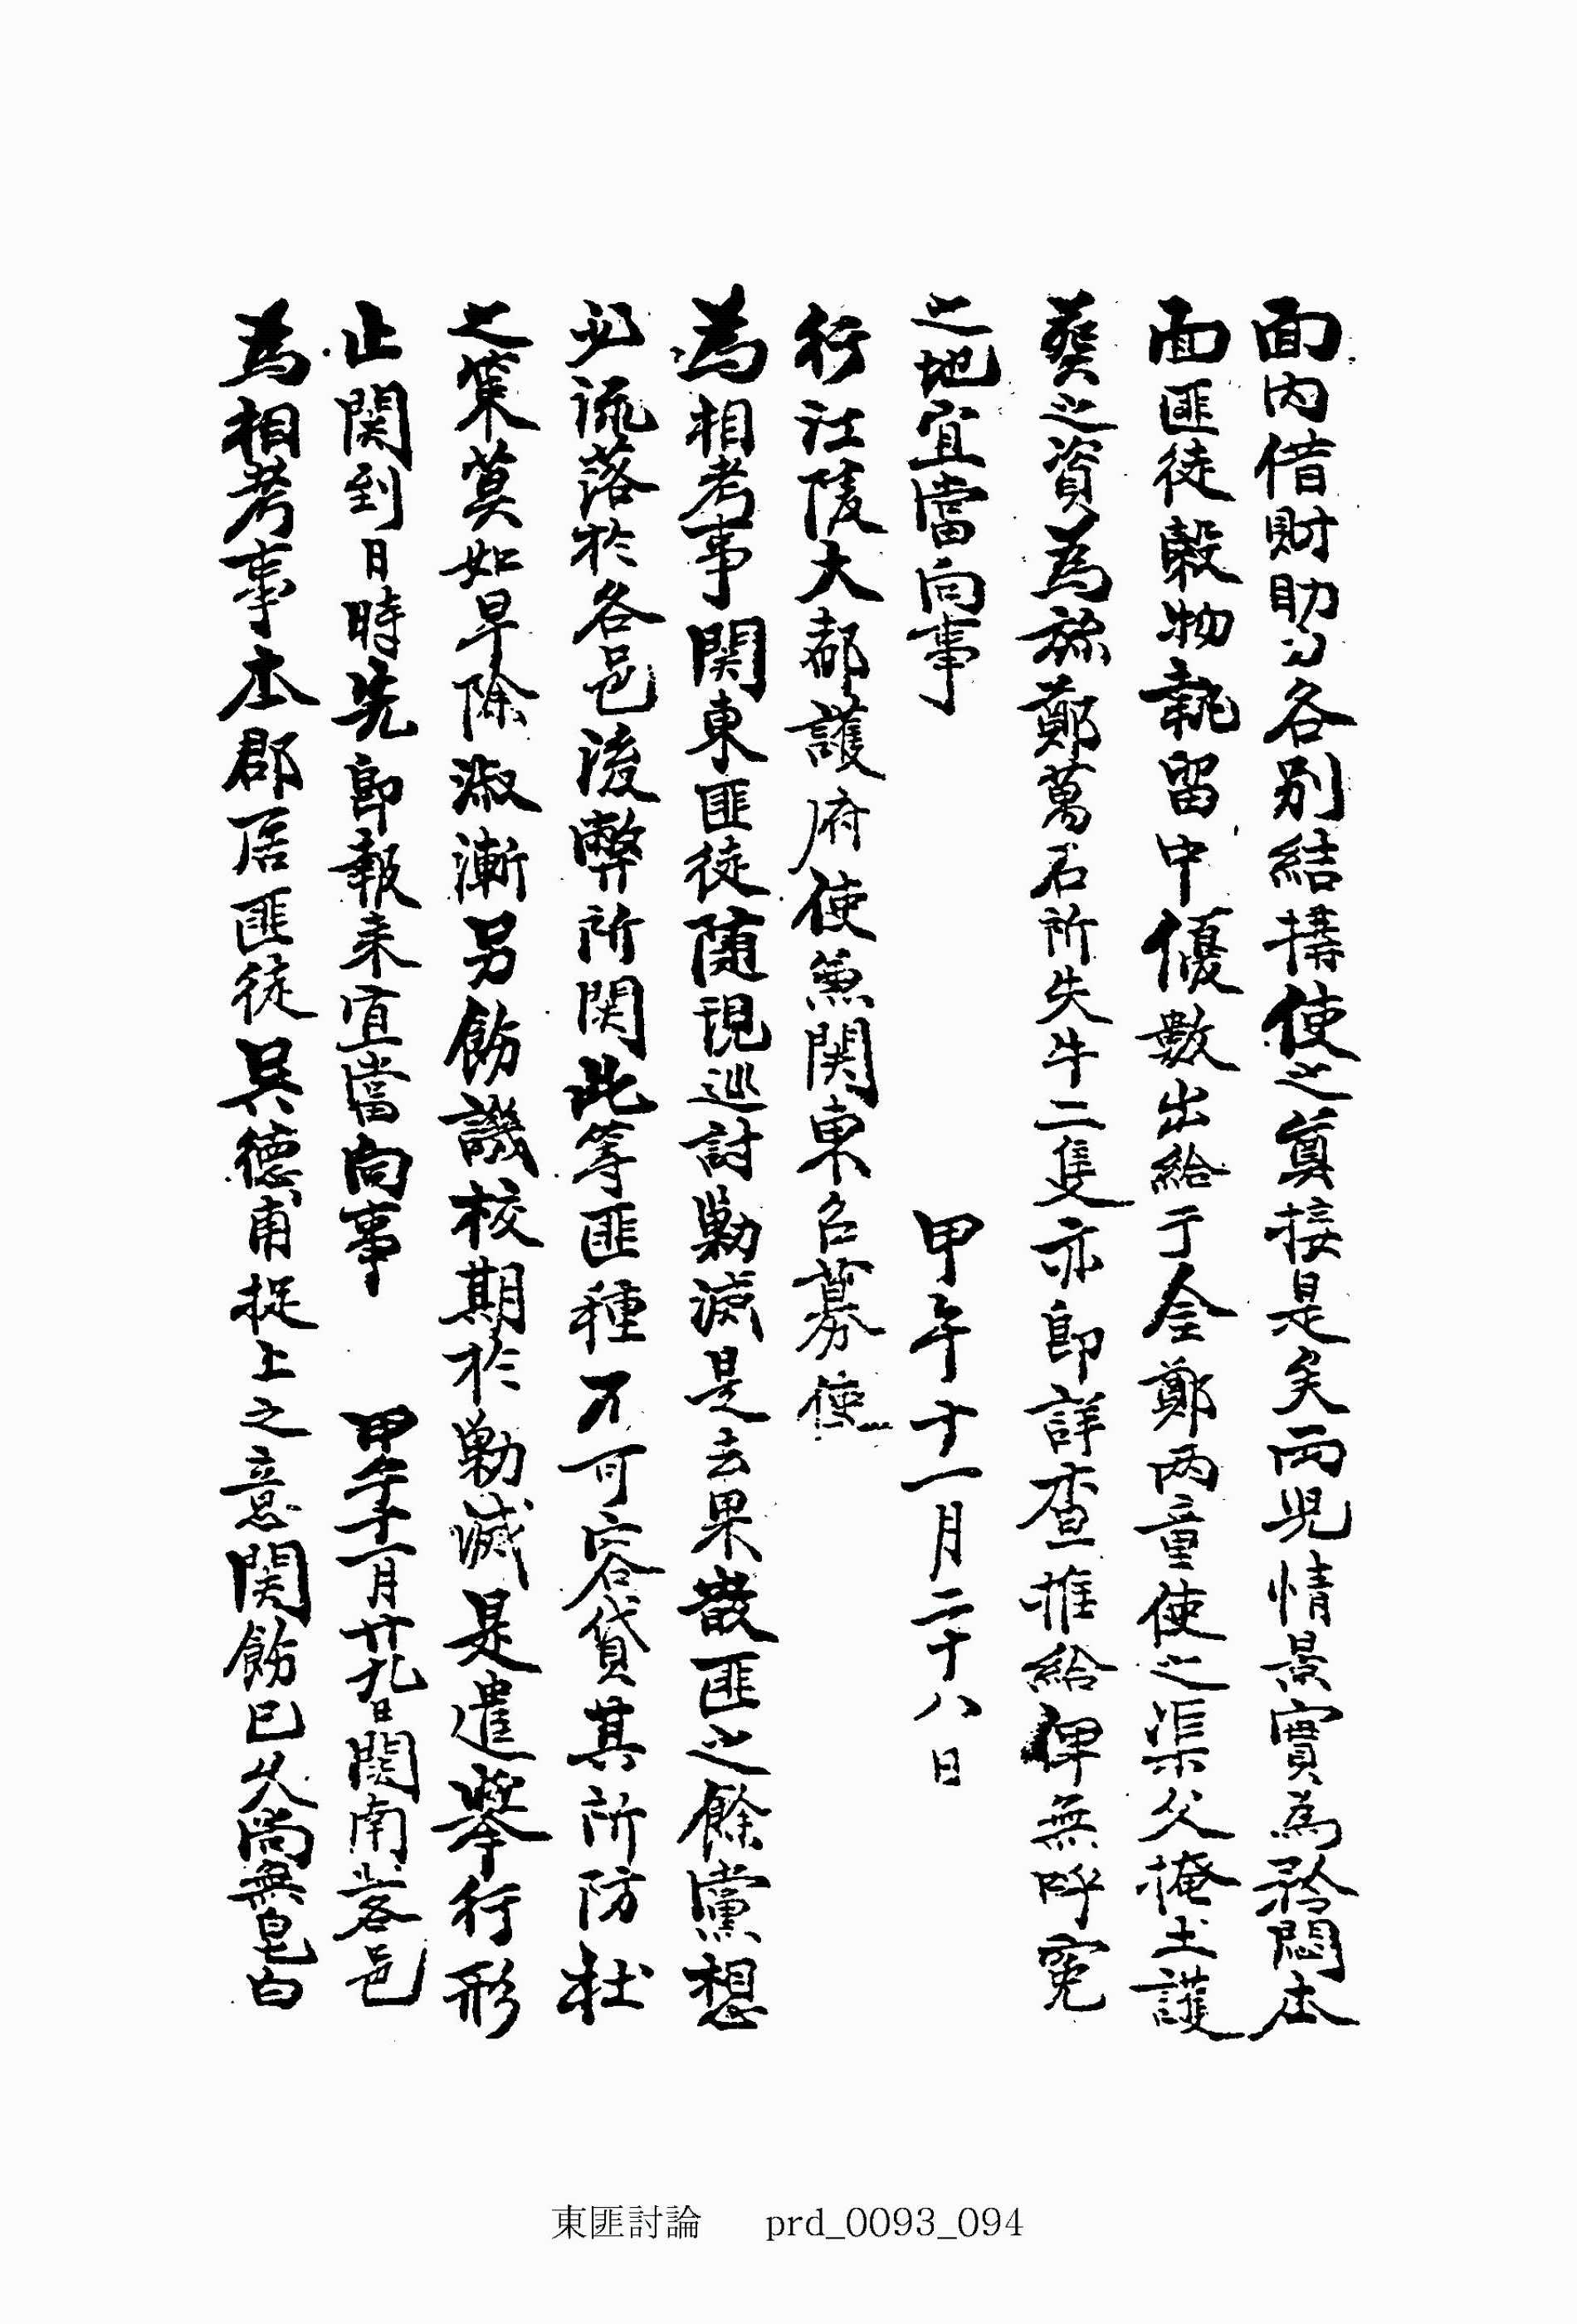 面内借財助力各別結搆使之奠接是矣两兒情景實為矜悶本
面匪徒穀物執留中優數出給于金鄭两童使之渠父掩土護
葬之資為旀鄭萬石所失牛二隻亦卽詳查推給俾無呼寃
之地宜當向事　甲午十一月二十八日
行江陵大都護府使兼関東召募使
為相考事関東匪徒随現巡討勦滅是去果散匪之餘黨想
必流落於各邑後弊所関此等匪種不可容貸其所防杜
之策莫如早除淑漸另飭譏校期於勦滅是遣擧行形
止関到日時先卽報来宜當向事　甲午十一月廿九日関南各邑
為相考事本郡居匪徒吳德甫捉上之意関飭已久尚無皂白
東匪討論　prd_0093_094